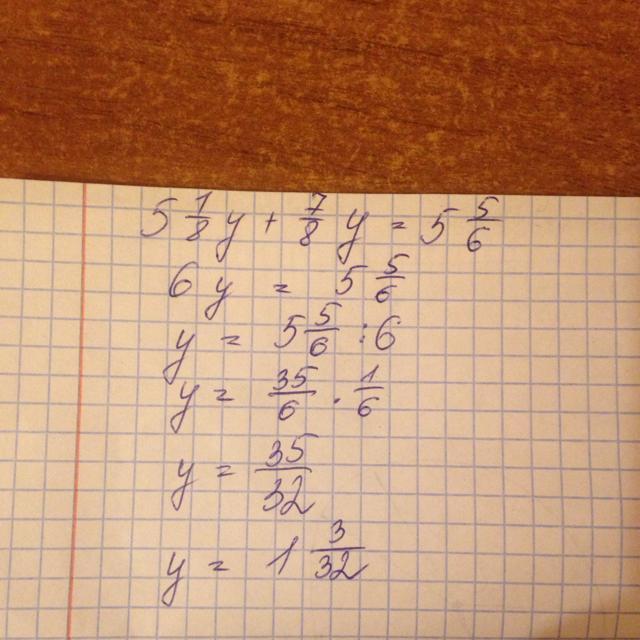 5 1/8 y + 7/8 y = 5 5/6
6 y = 5 5/6
y = 5 5/6 : 6
y = 35/6 · 1/6
y = 35/32
y = 1 3/32